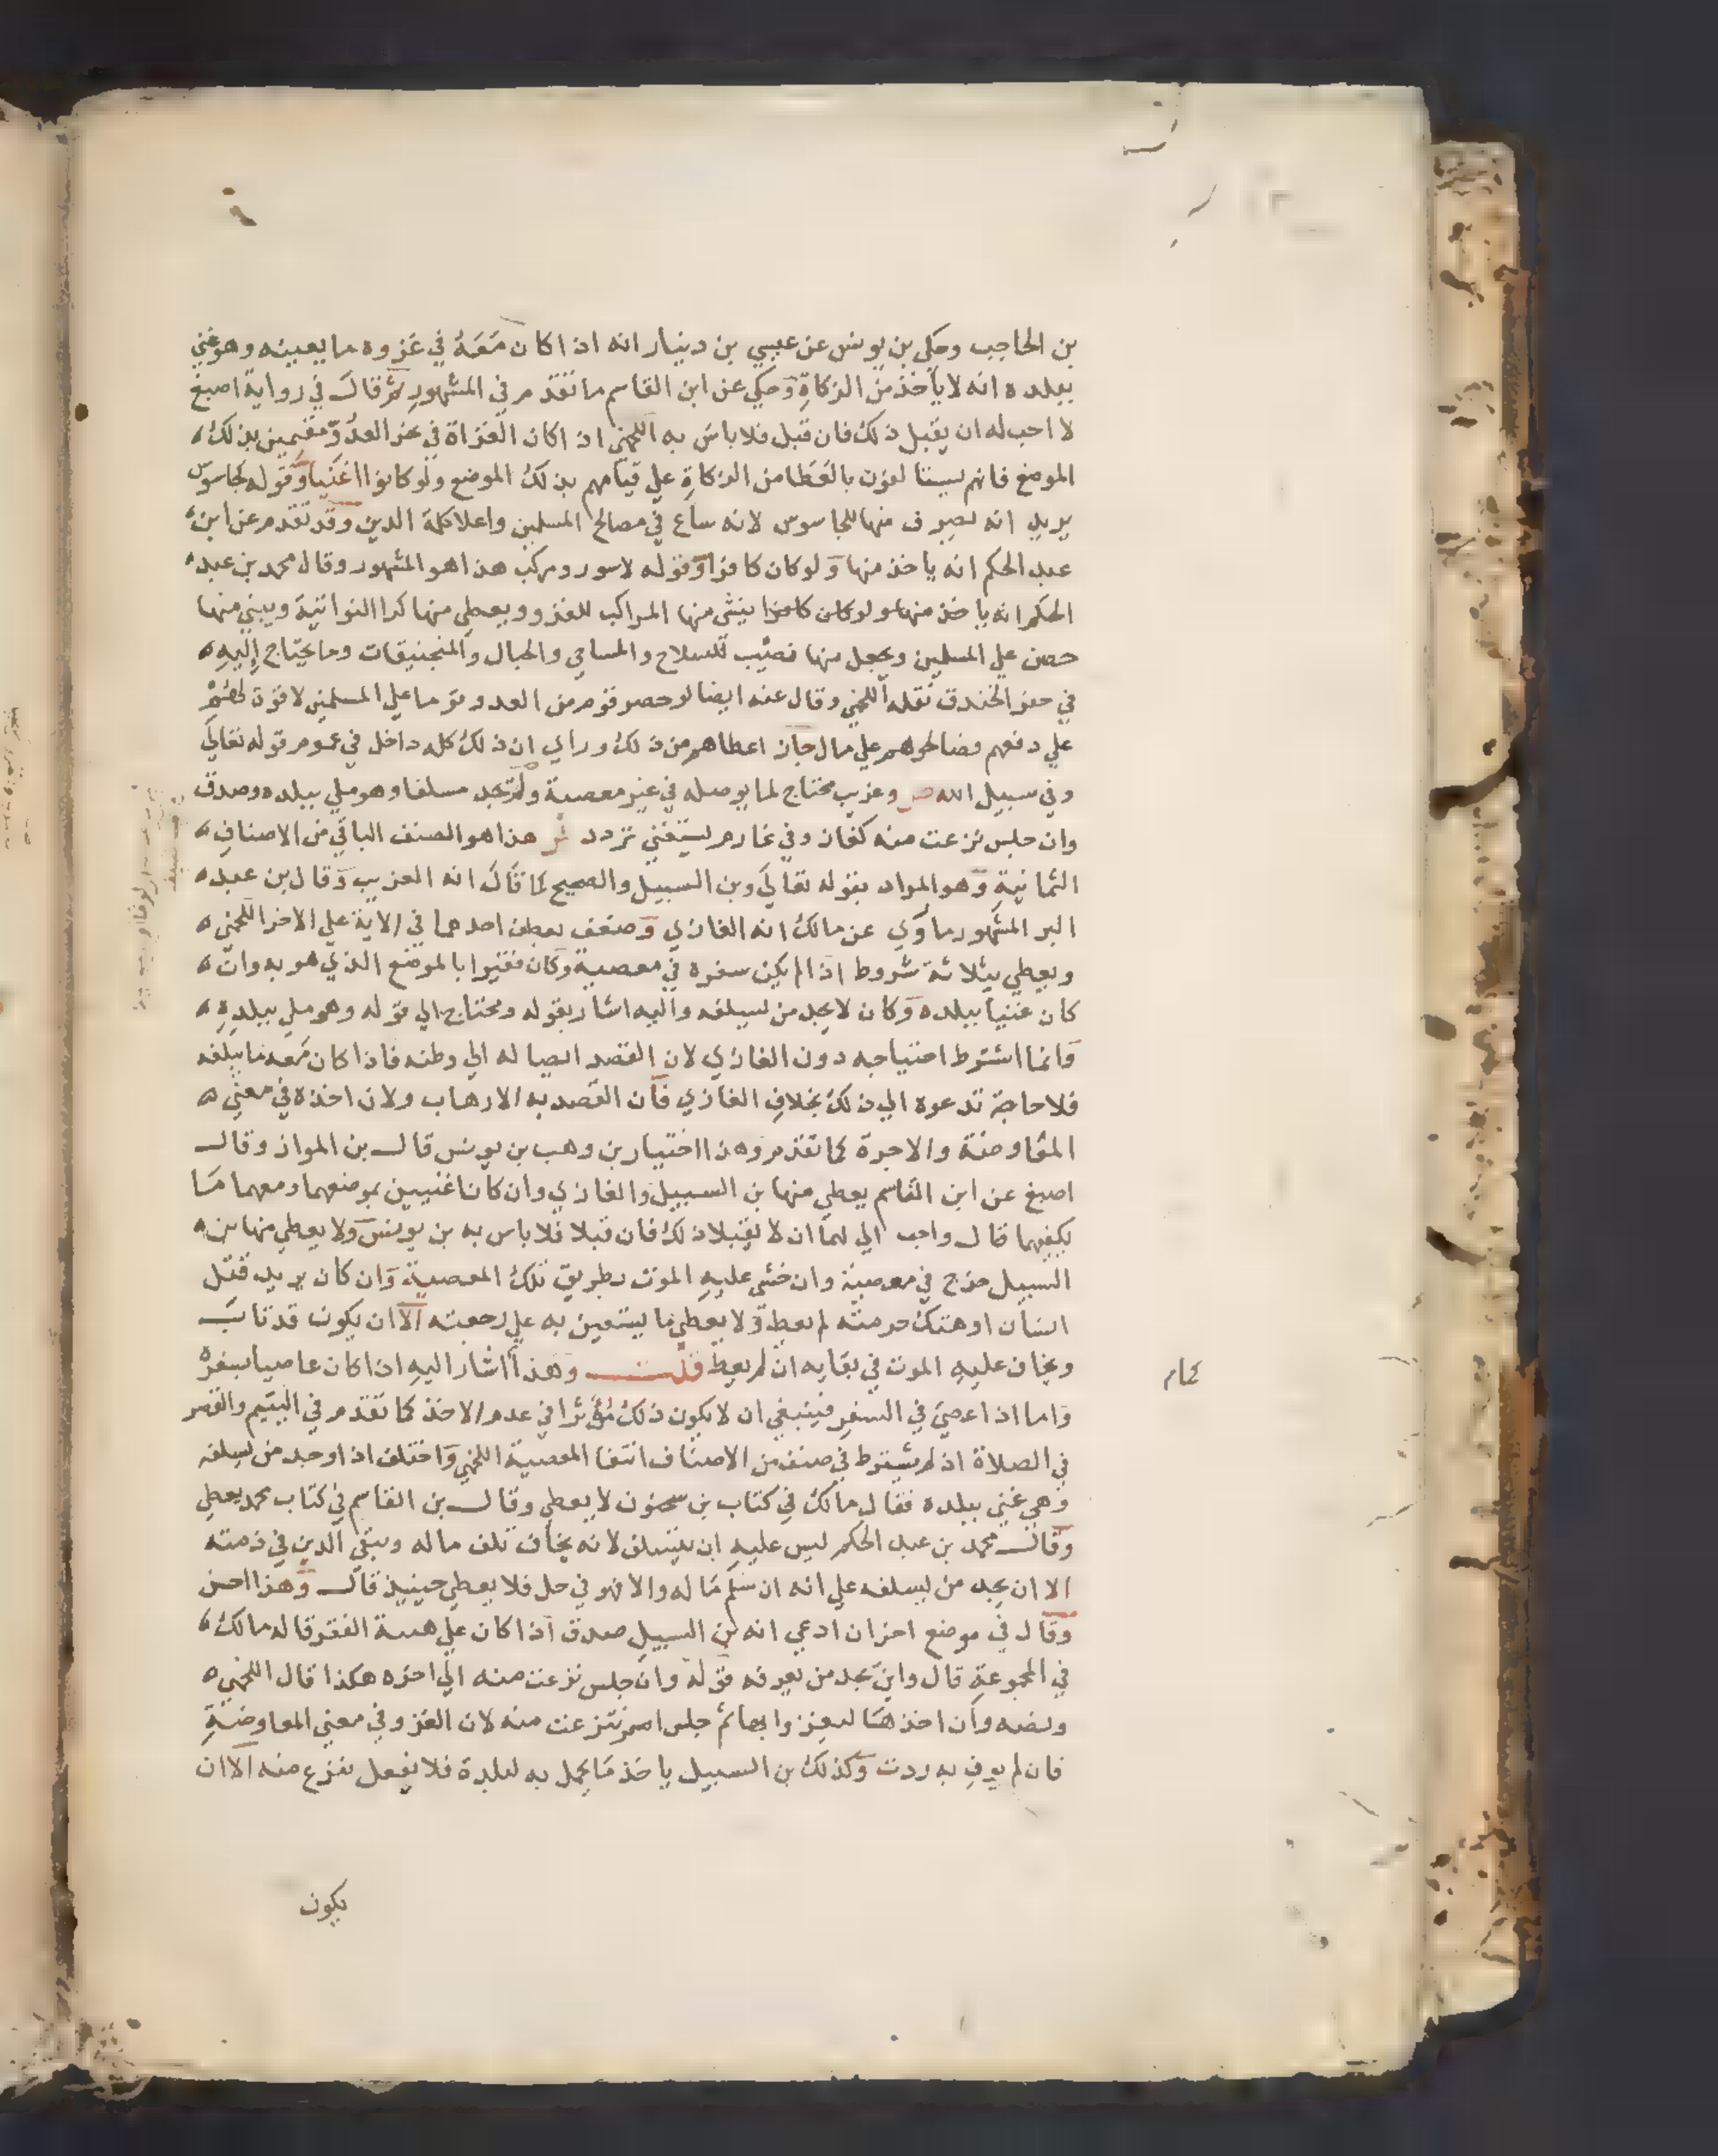 بن الحاجب وحكي بن يونس عن عيسي بن دينار انه اذا كان مَعَهُ في غزوه ما يعينه وهو غني
ببلده انه لا يأخذ من الزكاةِ وَحكي عن ابن القاسم ما تقدم في المشهور ثم قالَ في رواية اصبغ
لا احب له ان يقبل ذلك فان قَبل فلا باسَ به اللخمي اذا كان الغزاة في نحر العدُوّ مقيمين بذلك
الموضع فانهم يستالفون بالعَطا من الزكاةِ علي قيامهم بذلك الموضع ولو كانوا اغنيا وَقوله كجاسوس
يريد انه يصرف منها للجاسوس لانه ساع في مصالح المسلمين واعلا كلمة الدين وقد تقدم عن ابن
عبد الحكم انه ياخذ منها وَلو كان كافرا وَقوله لا سور ومركب هذا هو المشهور وقال محمد بن عبد
الحكم انه ياخذ منها ولو كان كافرا ينشي منها المراكب للغزو ويعطي منها كرا النواتية ويبني منها
حصن علي المسلمين ويجعل منها نصيب للسلاح والمساحي والحبال والمنجنيقات وما يحتاج إِليهِ
في حفر الخندق نقله اللخمي وقال عنه ايضا لو حصر قوم من العدو قوما علي المسلمين لا قوة لهم
علي دفعهم فصالحوهم علي مال جاز اعطاهم من ذلك وراي ان ذلك كله داخل في عموم قوله تعالي
وفي سبيل الله ص وغريب محتاج لما يوصله في غير معصية ولم يجد مسلفا وهو ملي ببلده وصدق
وان جلس نزعت منه كغاز وفي غارم يستغني تردد ش هذا هو الصنف الباقي من الاصنافِ
الثمانيةِ وَهو المراد بقوله تعالَي وبن السبيل والصحيح كما قَالَ انه الغريب وَقال بن عبد
البر المشهور ما رُوي عن مالك انه الغازي وَضعف بعطف احدهما في الاية علي الاخر اللخمي
ويعطي بثلاثة شروط اذا لم يكن سفره في معصية وَكان فقيرا بالموضع الذي هو به وان
كان غنيا ببلده وَكان لا يجد من يسلفه واليه اشار بقوله ومحتاج الي قوله وهو ملي ببلدِهِ
وَانما اشترط احتياجه دون الغازي لان القصد ايصاله الي وطنه فاذا كان مَعه ما يبلغه
فلا حاجة تدعوه الي ذلك بخلافِ الغازي فان القصد به الارهاب ولان اخذه في معني
المعاوضة والاجرة كما تقدم وهذا اختيار بن وهب بن يونس قال بن المواز وقال
اصبغ عن ابن القاسم يعطي منها بن السبيل والغازي وان كانا غنيين بموضعهما ومعهما مَا
يكفيهما قال واحب الي لهما ان لا يقبلا ذلك فان قبلا فلا باس به بن يونس وَلا يعطي منها بن
السبيل خرج في معصية وان خشي عليهِ الموت بطريق تلك المعصية وَان كان يريد قتل
انسان او هتك حرمته لم يعط وَلا يعطي ما يستعين به علي رجعته الا ان يكون قد تابَ
ويخاف عليهِ الموت في بقايه ان لم يعط قلت وَهذا اشار اليهِ اذا كان عاصيا بسفره
وَاما اذا عصيَ في السفر فينبغي ان لا يكون ذلك مُؤثرا في عدم الاخذ كما تقدم في التيمم والقصر
في الصلاة اذ لم يشترط في صنف من الاصناف انتفا المعصية اللخمي وَاختلف اذا وجد من يسلفه
وَهو غني ببلده فقال مالك في كتاب بن سحنون لا يعطي وقال بن القاسم في كتاب محمد يعطي
وَقال محمد بن عبد الحكم ليس عليهِ ان يتسلف لانه يخاف تلف ماله ويبقي الدين في ذمته
الا ان يجد من يسلفه علي انه ان سَلَم مَاله والا فهو في حل فلا يعطي حينيذ قال وَهذا احسن
وَقال في موضع اخر ان ادعي انه بن السبيل صدق اذا كان علي هيية الفقر قاله مالك
في المجموعةِ قال واين يجد من يعرفه قوله وان جلس نزعت منه الي اخره هكذا قال اللخمي
ونصه وان اخذ هَا ليغزوا بها ثم جلس نتزعت منه لان الغزو في معني المعاوضةِ
فان لم يوفِ به ردت وَكذلك بن السبيل ياخذ مَا يحمل به لبلده فلا يفعل ينزع منه الا ان
يكون